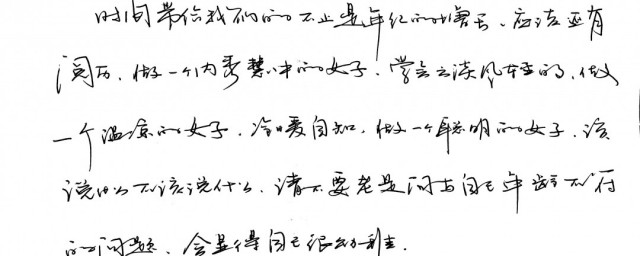 时间带给我们的不止是年纪的增长、应该还有
阅历、做一个内秀慧中的女子、学会云淡风轻的、做
一个温凉的女子、冷暖自知、做一个聪明的女子、该
说什么不该说什么、请不要老是问与自己年龄不符
的问题、会显得自己很幼稚。